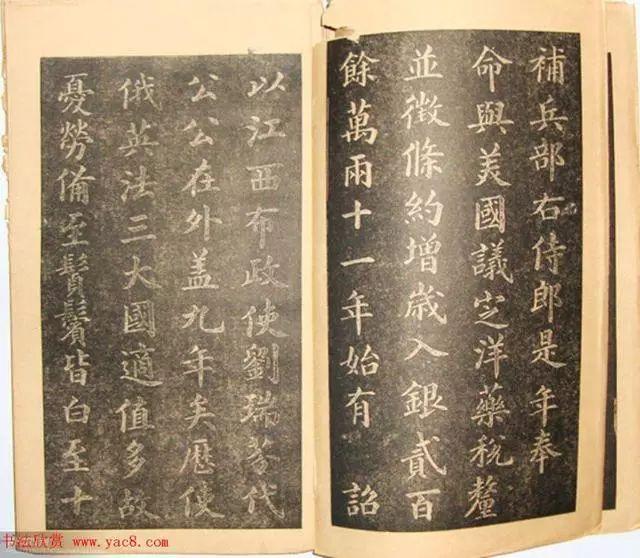 補兵部右侍郎是年奉
命與美國議定洋藥稅釐
並徵條約增歲入銀貳百
餘萬兩十一年始有 詔
以江西布政使劉瑞芬代
公公在外蓋九年矣歷使
俄英法三大國適值多故
憂勞備至鬢鬚皆白至十
书法欣赏 www.yac8.com